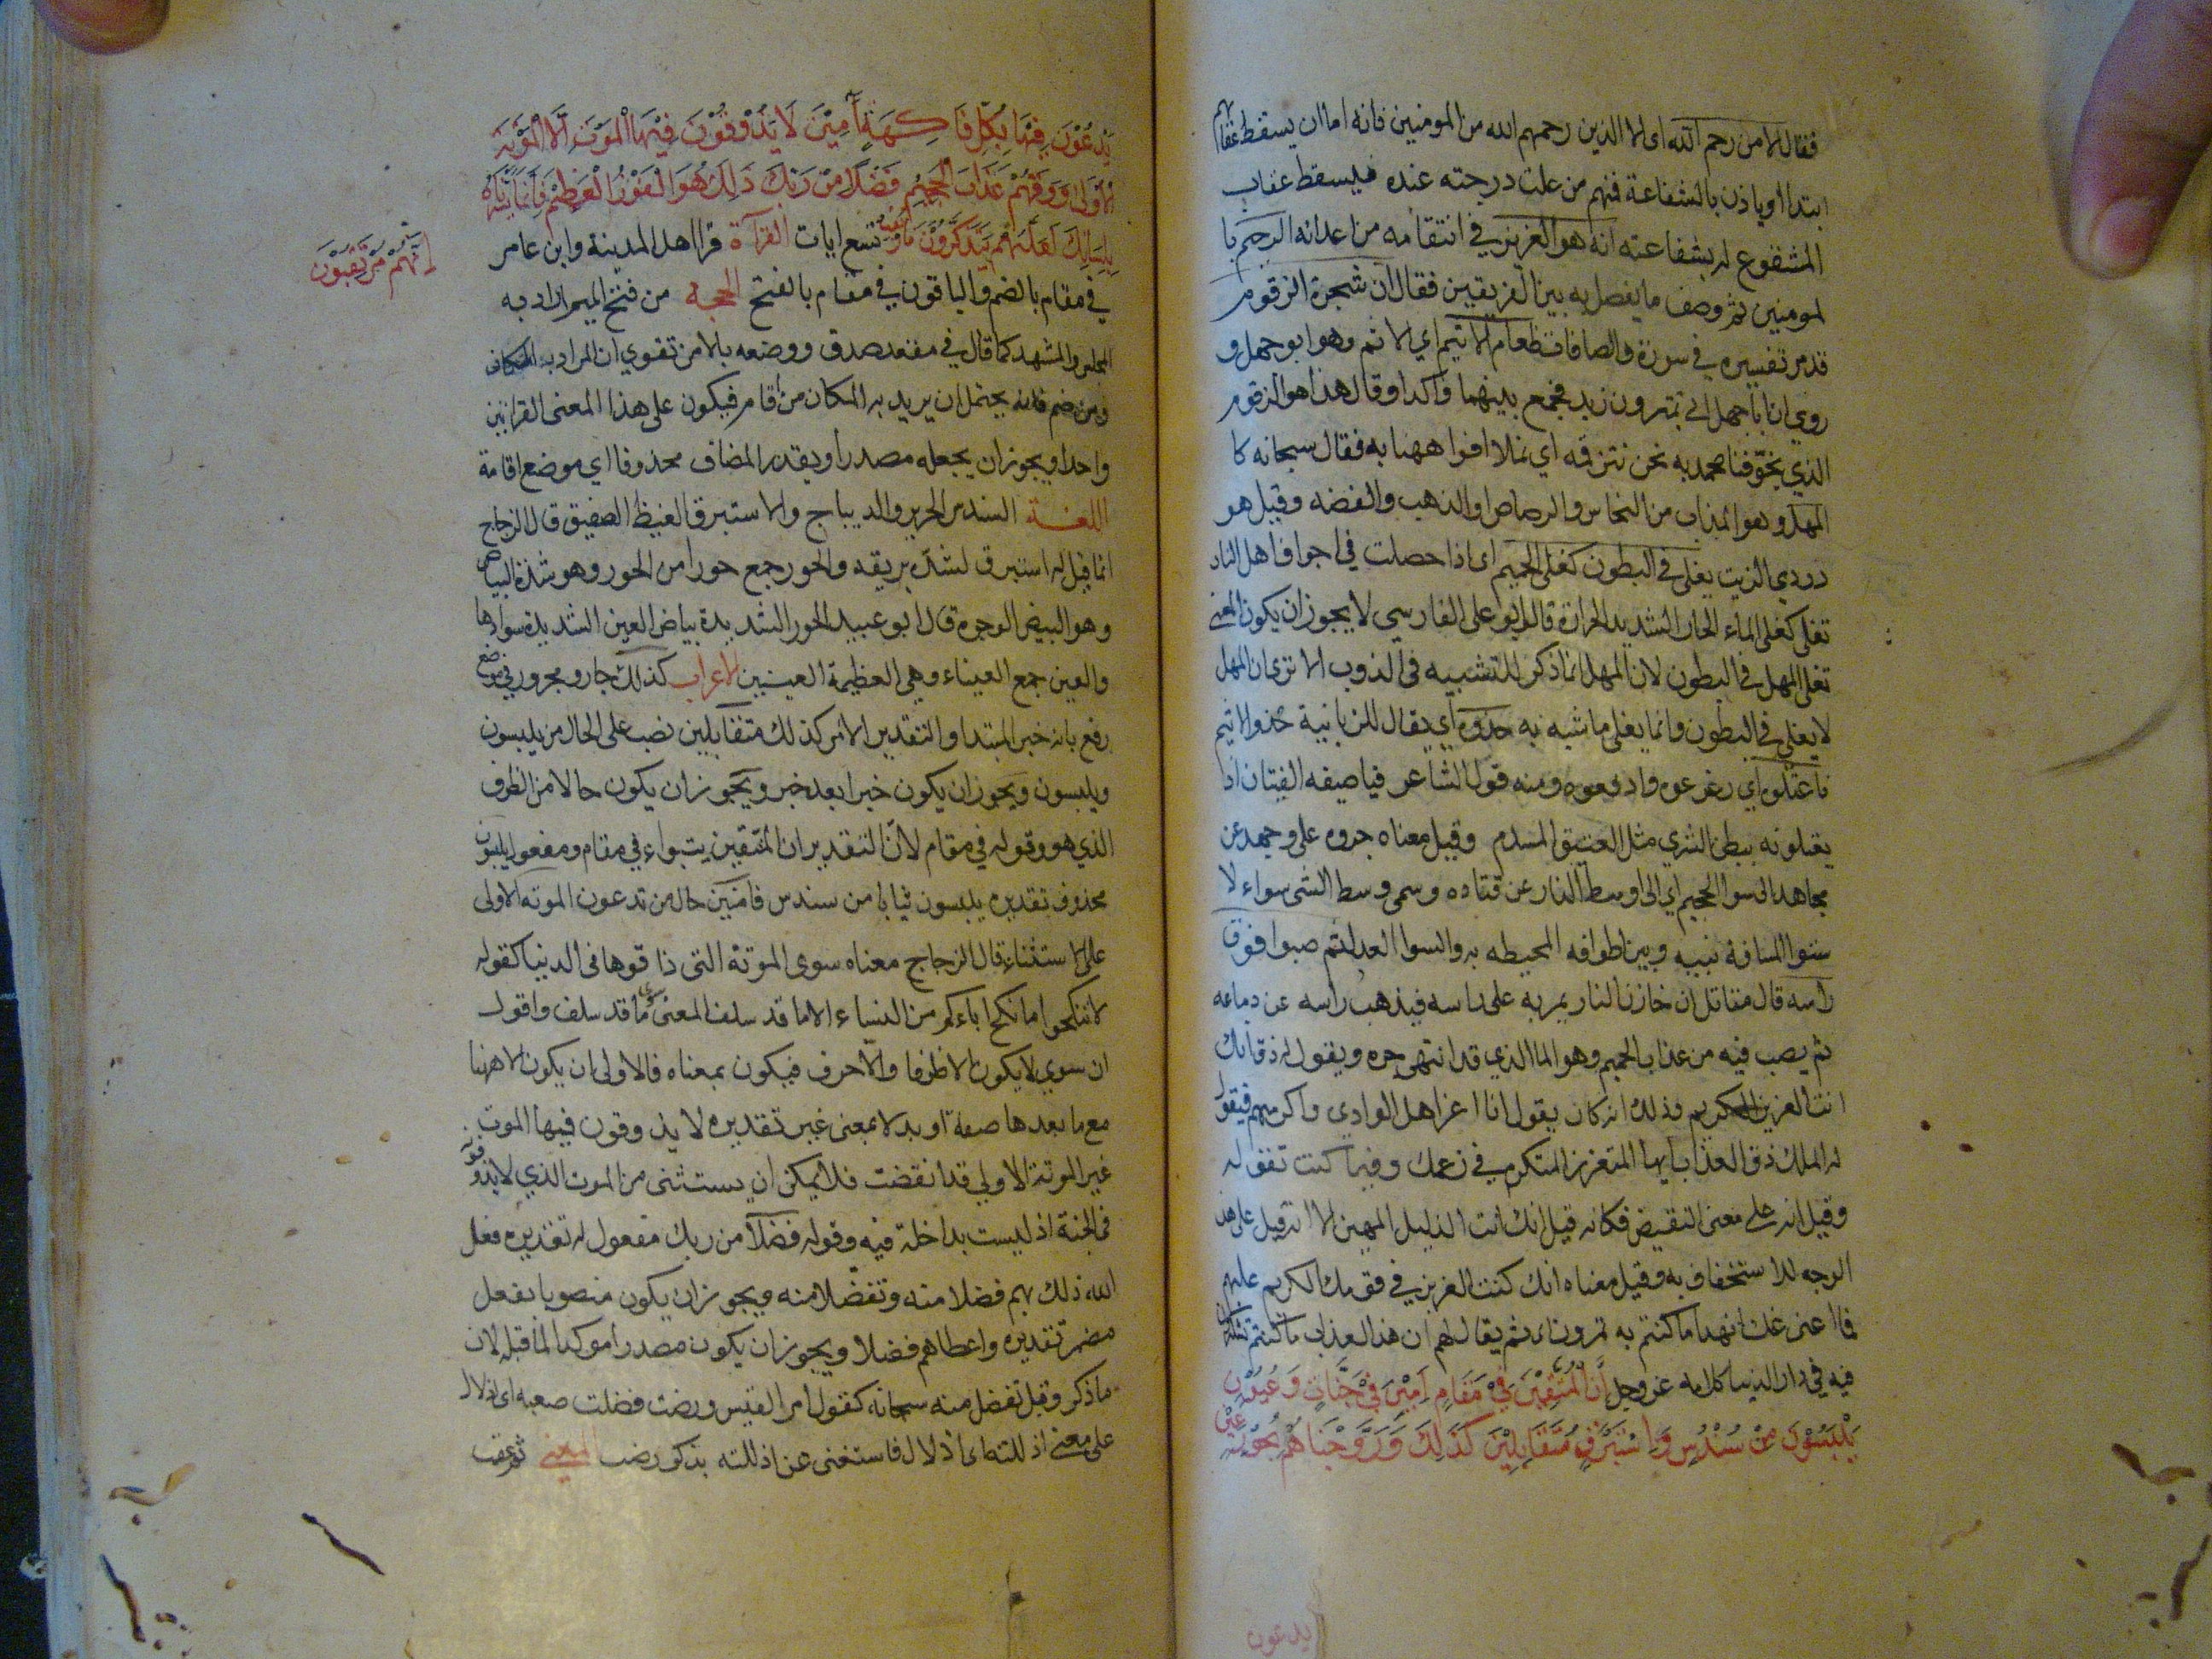 فقال الا من رحم الله اى الا الذين رحمهم الله من المومنين فانه اما ان يسقط عقابهم
ابتدا او ياذن بالشفاعة فيهم من علت درجته عنده فيسقط عقاب
المشفوع له بشفاعته انه هو العزيز في انتقامه من اعدائه الرحيم با
لمومنين ثم وصف ما يفصل به بين الفريقين فقال ان شجرة الزقوم
قد مر تفسيره في سورة والصافات طعام الاثيم اي الاثم وهو ابو جهل و
روي ان ابا جهل اتي بتمر وزبد فجمع بينهما واكل وقال هذا هو الزقوم
الذي يخوّفنا محمد به نحن نتزقمه اي نملا افواهنا به فقال سبحانه كا
المهل وهو المذاب من النحاس والرصاص او الذهب والفضه وقيل هو
دردي الزيت يغلى في البطون كغلى الحميم اى اذا حصلت في اجواف اهل النار
تغلى كغلى الماء الحار الشديد الحرارة قال ابو على الفارسي لا يجوز ان يكون المعنى
تغلى المهل في البطون لان المهل انما ذكر للتشبيه في الذوب الا ترى ان المهل
لا يغلي في البطون وانما يغلي ما شبه به خذوه اي يقال للزبانية خذوا الاثيم
فاعتلوه اي زعزعوه وادفعوه ومنه قول الشاعر فيا ضيفه الفتيان اذ
يعتلونه ببطن الثري مثل العتيق المسدم وقيل معناه جروه على وجهه عن
مجاهد الى سوا الجحيم اي الى وسط النار عن قتاده وسمى وسط الشى سواء لا
ستوا المسافة بينه وبين اطرافه المحيطه به والسوا العدل ثم صبوا فوق
راسه قال مقاتل ان خازن النار يمر به على راسه فيذهب راسه عن دماغه
ثم يصب فيه من عذاب الحميم وهو الما الذي قد انتهى حره ويقول له ذق انك
انت العزيز الكريم وذلك انه كان يقول انا اعز اهل الوادي واكرمهم فيقول
له الملك ذق العذاب ايها المتعزز المتكرم في زعمك وفيما كنت تقوله
وقيل انه على معنى النقيض فكانه قيل انك انت الذليل المهين الا انه قيل على هذا
الوجه للاستخفاف به وقيل معناه انك كنت العزيز في قومك الكريم عليهم
فما اغنى عنك ان هذا ما كنتم به تمترون اى ثم يقال لهم ان هذا العذاب ما كنتم تشكون
فيه في دار الدنيا كلامه عز وجل إنَّ الْمُتَّقِيْنَ فِيْ مَقَامٍ اَمِيْنٍ فِيْ جَنَّاتٍ وَعُيُوْنٍ
يَلْبَسُوْنَ مِنْ سُنْدُسٍ وَاِسْتَبْرَقٍ مُتَقَابِلِيْنَ كَذَلِكَ وَزَوَّجْنَاهُمْ بِحُوْرٍ عِيْنٍ
يدعون
يَدْعُوْنَ فِيْهَا بِكُلِّ فَاكِهَةٍ آمِنِيْنَ لَا يَذُوْقُوْنَ فِيْهَا الْمَوْتَ اِلَّا الْمَوْتَةَ
الْاُوْلَى وَوَقَهُمْ عَذَابَ الْجَحِيْمِ فَضْلًا مِنْ رَبِّكَ ذَلِكَ هُوَ الْفَوْزُ الْعَظِيْمُ فَاِنَّمَا يَسَّرْنَاهُ
بِلِسَانِكَ لَعَلَّهُمْ يَتَذَكَّرُوْنَ فَارْتَقِبْ تسع ايات القراءة قرا اهل المدينة وابن عامر
اِنَّهُمْ مُرْتَقِبُوْنَ
في مقام بالضم والباقون في مقام بالفتح الحجة من فتح الميم اراد به
المجلس والمشهد كما قال في مقعد صدق ووصفه بالامن تقوي ان المراد به المكان
ومن ضم فانه يحتمل ان يريد به المكان من اقام فيكون على هذا المعنى القراتين
واحدا ويجوز ان يجعله مصدرا ويقدر المضاف محذوفا اي موضع اقامة
اللغة السندس الحرير والديباج والاستبرق الغليظ الصفيق قال الزجاج
انما قيل له استبرق لشدّة بريقه والحور جمع حورا من الحور وهو شدة البياض
وهو البيض الوجوه قال ابو عبيد الحور الشديدة بياض العين الشديدة سوادها
والعين جمع العيناء وهي العظيمة العينين الاعراب كذلك جار ومجرور في موضع
رفع بانه خبر المبتدا والتقدير الامر كذلك متقابلين نصب على الحال من يلبسون
ويلبسون ويجوز ان يكون خبرا بعد خبر ويجوز ان يكون حالا من الظرف
الذي هو وقوله في مقام لانّ التقدير ان المتقين يتبواء في مقام ومفعول يلبسون
محذوف تقديره يلبسون ثيابا من سندس فامنين حال من تدعون الموتة الاولى
على الاستثناء قال الزجاج معناه سوى الموتة التى ذاقوها فى الدنيا كقوله
لا تنكحوا ما نكح اباءكم من النساء الا ما قد سلف المعنى سوى ما قد سلف واقول
ان سوي لا يكون الا ظرفا والا حرف فيكون بمعناه فالاولى ان يكون الا هنا
مع ما بعدها صفة او بدلا بمعنى غير تقديره لا يذوقون فيها الموت
غير الموتة الاولي قد انقضت فلا يمكن ان يستثنى من الموت الذي لا يذوقونه
في الجنة اذ ليست بداخلة فيه وقوله فضلا من ربك مفعول له تقديره فعل
الله ذلك بهم فضلا منه وتفضّلا منه ويجوز ان يكون منصوبا بفعل
مضمر تقديره واعطاهم فضلا ويجوز ان يكون مصدرا موكدا لما قبله لان
ما ذكر وقبل تفضل منه سبحانه كقول امر القيس ورضت فضلت صعبه اى اذلال
على معنى اذللته اى اذلال فاستغنى عن اذللته بذكر رضت المعنى ثم عقب